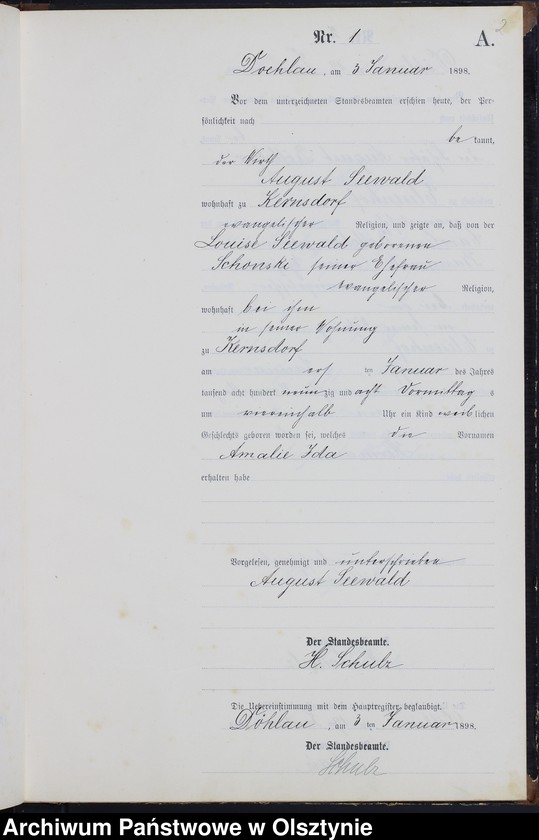 2
Nr. 1 A.
Doehlau, am 3 Januar 1898.
Vor dem unterzeichneten Standesbeamten erschien heute, der Per-
sönlichkeit nach
be kannt,
der Wirth
August Seewald
wohnhaft zu Kernsdorf
evangelischer Religion, und zeigte an, daß von der
Louise Seewald geborenen
Schonski seiner Ehefrau
evangelischer Religion,
wohnhaft bei ihm
in seiner Wohnung
zu Kernsdorf
am ers ten Januar des Jahres
tausend acht hundert neun zig und acht Vormittag s
um viereinhalb Uhr ein Kind weib lichen
Geschlechts geboren worden sei, welches die Vornamen
Amalie Ida
erhalten habe
Vorgelesen, genehmigt und unterschrieben
August Seewald
Der Standesbeamte.
H. Schulz
Die Uebereinstimmung mit dem Hauptregister beglaubigt.
Döhlau, am 3 ten Januar 1898.
Der Standesbeamte.
Schulz
Archiwum Państwowe w Olsztynie